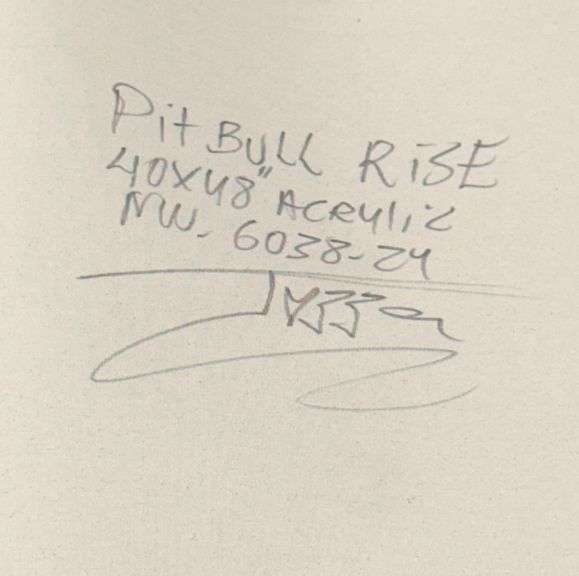 Pit BULL RISE
40X48" ACRYLIC
NW. 6038-24